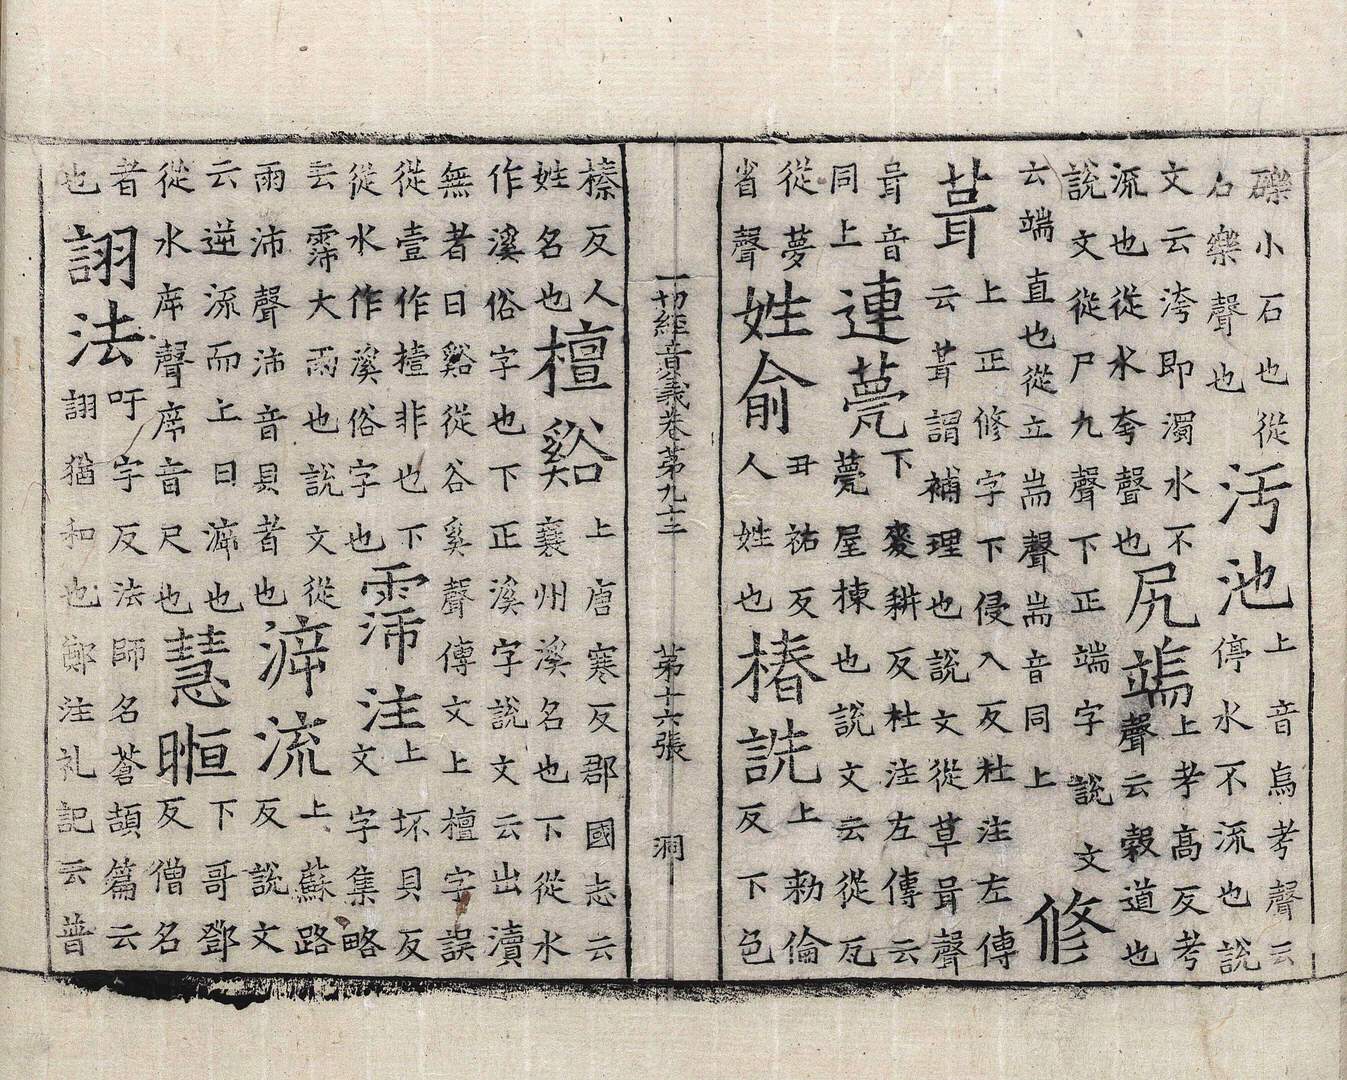 礫小石也從石樂聲也汙池上音烏考聲云停水不流也說
文云洿即濁水不流也從水夸聲也尻端上考高反考聲云穀道也
說文從尸九聲下正端字說文云端直也從立耑聲耑音同上修
葺上正修字下侵入反杜注左傳云葺謂補理也說文從草咠聲
咠音同上連甍下麥耕反杜注左傳云甍屋棟也說文云從瓦
從夢省聲姓俞丑祐反人姓也椿詵上勑倫反下色
一切經音義卷第九十三 第十六張 洞
榛反人姓名也檀谿上唐寒反郡國志云襄州溪名也下從水
作溪俗字也下正溪字說文云出瀆無者曰谿從谷奚聲傳文上檀字誤
從壹作㯖非也下從水作溪俗字也霈注上坏貝反文字集略
云霈大雨也說文從雨沛聲沛音貝者也㴑流上蘇路反說文
云逆流而上曰㴑也從水㡿聲㡿音尺也慧暅下哥鄧反僧名
者也詡法吁字反法師名蒼頡篇云詡猶和也鄭注礼記云普